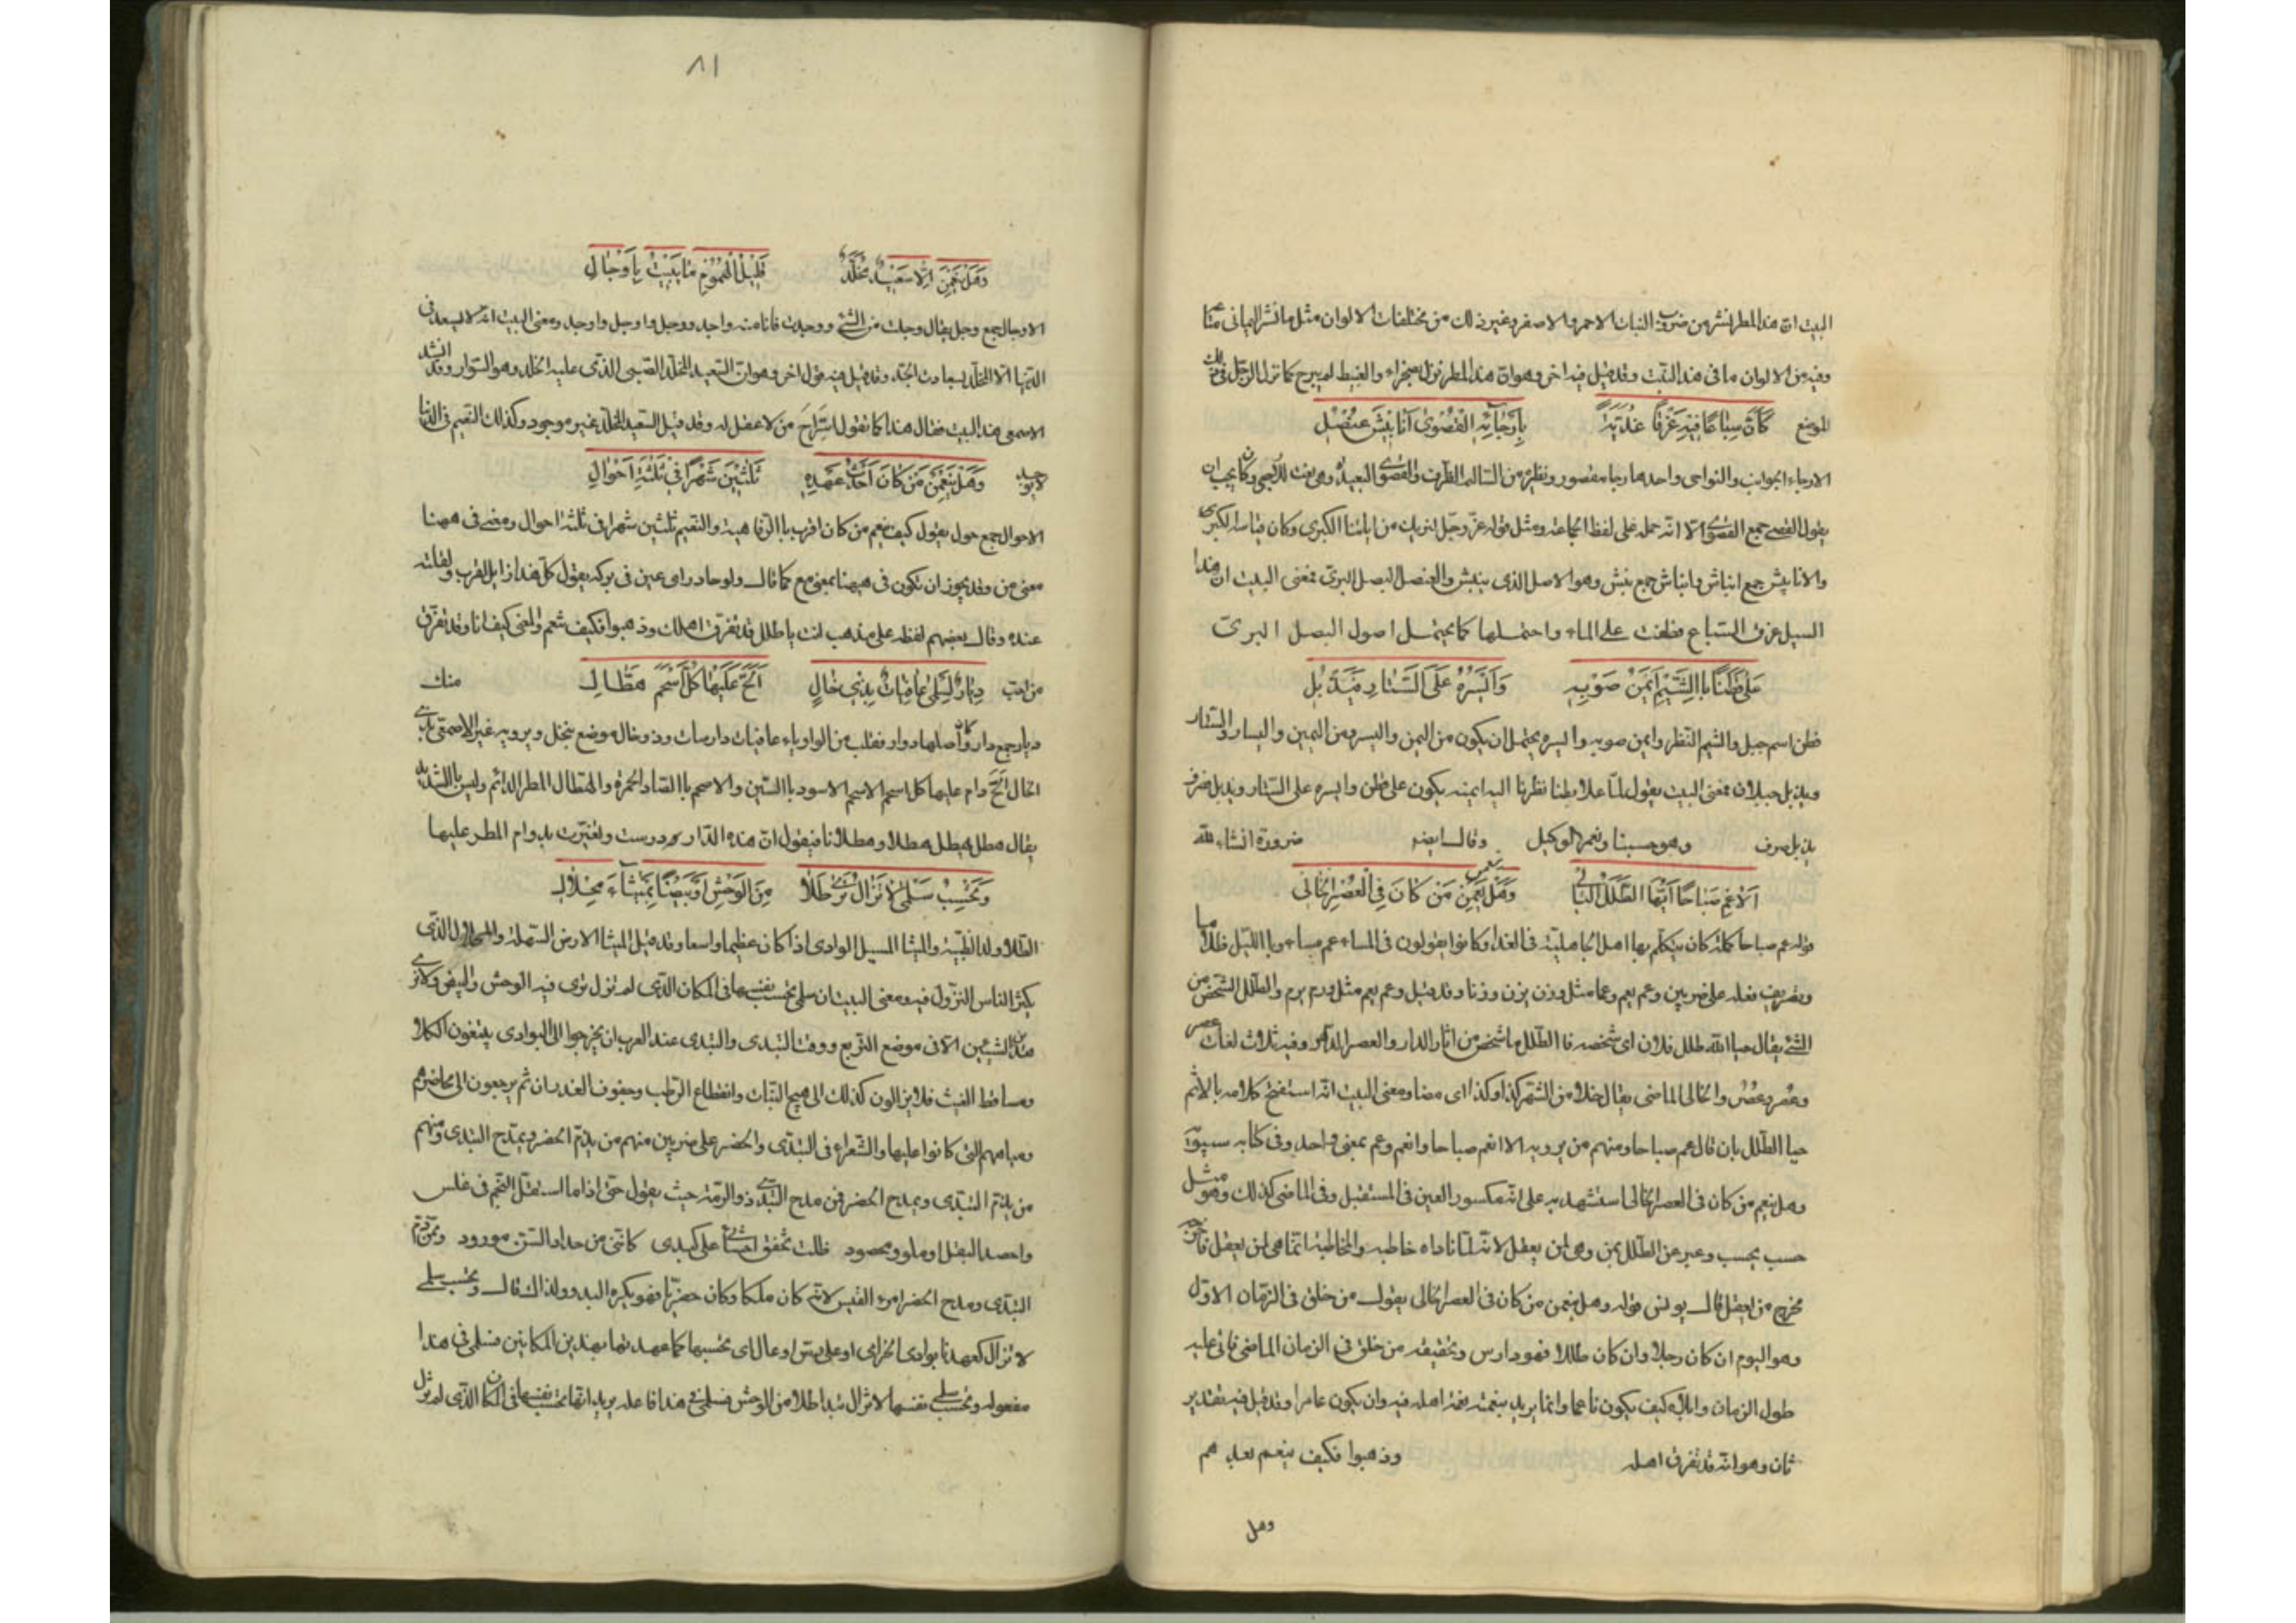 البيت ان هذا المطر نشر من ضروب النبات الاحمر والاصفر وغير ذلك من مختلفات الالوان مثل ما نشر اليماني متاعا
وفيه من الالوان ما في هذا البيت وقد قيل فيه اخر وهو ان هذا المطر نزل بصحراء والغبيط لم يبرح كما نزل الرجل في ذلك
الموضع كَأَنَّ سِبَاعًا فِيهِ غَرْقَى غُدَيَّةً بِأَرْجَائِهِ الْقُصْوَى أَنَابِيشُ عُنْصُلِ
الارجاء الجوانب والنواحي واحدها رجا مقصور ونظيره من السالم الطرف والقصوى البعيدة وهي نعت للارجاء وكان يجب ان
يقول القصى جمع القصوى الا انه حمله على لفظ الجماعة ومثل قوله عز وجل لنريك من اياتنا الكبرى وكان قياسه الكبرى
والانابيش جمع انباش وانباش جمع نبش وهو الاصل الذي ينبش والعنصل البصل البري فمعنى البيت ان هذا
السيل غرق السباع فطفت على الماء واحتملها كما يحتمل اصول البصل البري
عَلَى قَطَنٍ بِالشَّيْمِ أَيْمَنُ صَوْبِهِ وَأَيْسَرُهُ عَلَى السِّتَارِ فَيَذْبُلِ
قطن اسم جبل والشيم النظر وايمن صوبه وايسره يحتمل ان يكون من اليمن واليسر ومن اليمين واليسار والستار
ويذبل جبلان فمعنى البيت يقول لما علا قطنا نظرنا اليه ايمنه يكون على قطن وايسره على الستار ويذبل صرف
يذبل صرف وهو حسبنا ونعم الوكيل وقال ايضا ضرورة انشاء الله
أَلَا عِمْ صَبَاحًا أَيُّهَا الطَّلَلُ الْبَالِي وَهَلْ يَعِمَنْ مَنْ كَانَ فِي الْعُصُرِ الْخَالِي
قوله عم صباحا كلمة كان يتكلم بها اهل الجاهلية في الغداة وكانوا يقولون في المساء عم مساء وبالليل ظلاما
وتصريف فعله على ضربين وعم يعم وعما مثل وزن يزن وزنا وقد قيل وعم يعم مثل ورم يرم والطلل الشخص من
الشيء يقال حيا الله طلل فلان اي شخصه فالطلل ما شخص من اثار الدار والعصر الدهر وفيه ثلاث لغات عصر
وعُصْر وعُصُر والخالي الماضي يقال خلا من الشهر كذا وكذا اي مضا ومعنى البيت انه استفتح كلامه بالا ثم
حيا الطلل بان قال عم صباحا ومنهم من يرويه الا انعم صباحا وانعم وعم بمعنى واحد وفي كتابه سيبويه
وهل يعم من كان في العصر الخالي استشهد به على انه مكسور العين في المستقبل وفي الماضي كذلك وهو مثل
حسب يحسب وعبر عن الطلل بمن وهي لمن يعقل لانه لما ناداه خاطبه والمخاطبة انما هي لمن يعقل
مخرج من يعقل قال يونس قوله وهل ينعمن من كان في العصر الخالي يقول من خلق في الزمان الاول
وهو اليوم ان كان رجلا وان كان طللا فهو دارس وتحقيقه من خلق في الزمان الماضي فاتى عليه
طول الزمان وابلاه كيف يكون ناعما وانما يريد بنعمته نعمة اهله فيه وان يكون عامرا وقد قيل فيه تقدير
ثان وهو انه قد تفرق اهله وذهبوا فكيف ينعم بعدهم
وهل
٨١
وَهَلْ يَنْعَمَنْ إِلَّا سَعِيدٌ مُخَلَّدٌ قَلِيلُ الْهُمُومِ مَا يَبِيتُ بِأَوْجَالِ
الاوجال جمع وجل يقال وجلت من الشيء ووجدت فانا منه واجد ووجل واوجل واوجد ومعنى البيت انه لا يسعد في
الدنيا الا المخلد بسعادت الجد وقد قيل فيه قول اخر وهو ان السعيد المخلد الصبي الذي عليه الخلد وهو السوار وقد انشد
الاسمعي هذا البيت فقال هذا كما تقول استراح من لا عقل له وقد قيل السعيد المخلد غير موجود وكذلك النعيم في الدنيا
لا يوجد وَهَلْ يَنْعَمَنْ مَنْ كَانَ أَحْدَثُ عَهْدِهِ ثَلَثِينَ شَهْرًا فِي ثَلَثَةِ أَحْوَالِ
الاحوال جمع حول يقول كيف ينعم من كان اقرب باالرفاهية والنعيم ثلثين شهرا في ثلثة احوال ومعنى في ههنا
معنى من وقد يجوز ان تكون في هيهنا بمعنى مع كما قال ولوحا ذراعين في بركة يقول كل هذا زايل القرب ولقائه
عنده وقال بعضهم لفظه على مذهب انت يا طلل قد تفرق اهلك وذهبوا فكيف تنعم والمعنى كيف انا وقد تفرق
من احب دِيَارٌ لِسَلْمَى عَافِيَاتٌ بِذِي خَالٍ أَلَحَّ عَلَيْهَا كُلُّ أَسْحَمَ هَطَّالِ منك
ديار جمع دار وكان اصلها دوار فقلب من الواو ياء عافيات دارسات وذو خال موضع بنخل ويرويه غير الاصمعي بذي
الخال الح دام عليها كل اسحم الاسحم الاسود باالسين والاصحم باالصاد الحمرة والهطال المطر الدائم وليس باالشديد
يقال هطل يهطل هطلا وهطلانا فيقول ان هذه الدار درست وتغيرت بدوام المطر عليها
وَتَحْسِبُ سَلْمَى لَا تَزَالُ تَرَى طَلًا مِنَ الْوَحْشِ أَوْ بَيْضًا بِمَيْثَاءَ مِحْلَالِ
الطلا ولد الظبية والميثا المسيل الوادي اذا كان عظيما واسعا وقد قيل الميثا الارض السهلة والمحلال الذي
يكثر الناس النزول فيه ومعنى البيت ان سلمى تحسب نفسها في المكان الذي لم تزل ترى فيه الوحش والبيض ولا ترى
هذين الشيئين الا في موضع التربع ووقت التبدي والتبدي عند العرب ان يخرجوا الى البوادي يبتغون الكلا
ومساقط الغيث فلا يزالون كذلك الى هيج النبات وانقطاع الرطب وجفوف الغدران ثم يرجعون الى محاضرهم
ومياههم التي كانوا عليها والشعراء في التبدي والحضر على ضربين منهم من يذم الحضر ويمدح التبدي ومنهم
من يذم التبدي ويمدح الحضر فمن مدح التبدي ذو الرمة حيث يقول حتى اذا ما استقل النجم في غلس
واحصد البقل او ملو ومحصود ظلت تخفق احشائي على كبدي كانني من حذار البين مورود وممن ذم
التبدي ومدح الحضر امرء القيس لانه كان ملكا وكان حضريا فهو يكره البدو ولذلك قال وتحسب سلمى
لا تزال كعهدنا بوادي الخزامى او على رس اوعال اي تحسبها كما عهدتها بهذين المكانين فسلمى في هذا
مفعوله وتحسب سلمى نفسها لا تزال ترى طلا من الوحش فسلمى في هذا فاعله يريد انها تحسب نفسها في المكان الذي لم تزل